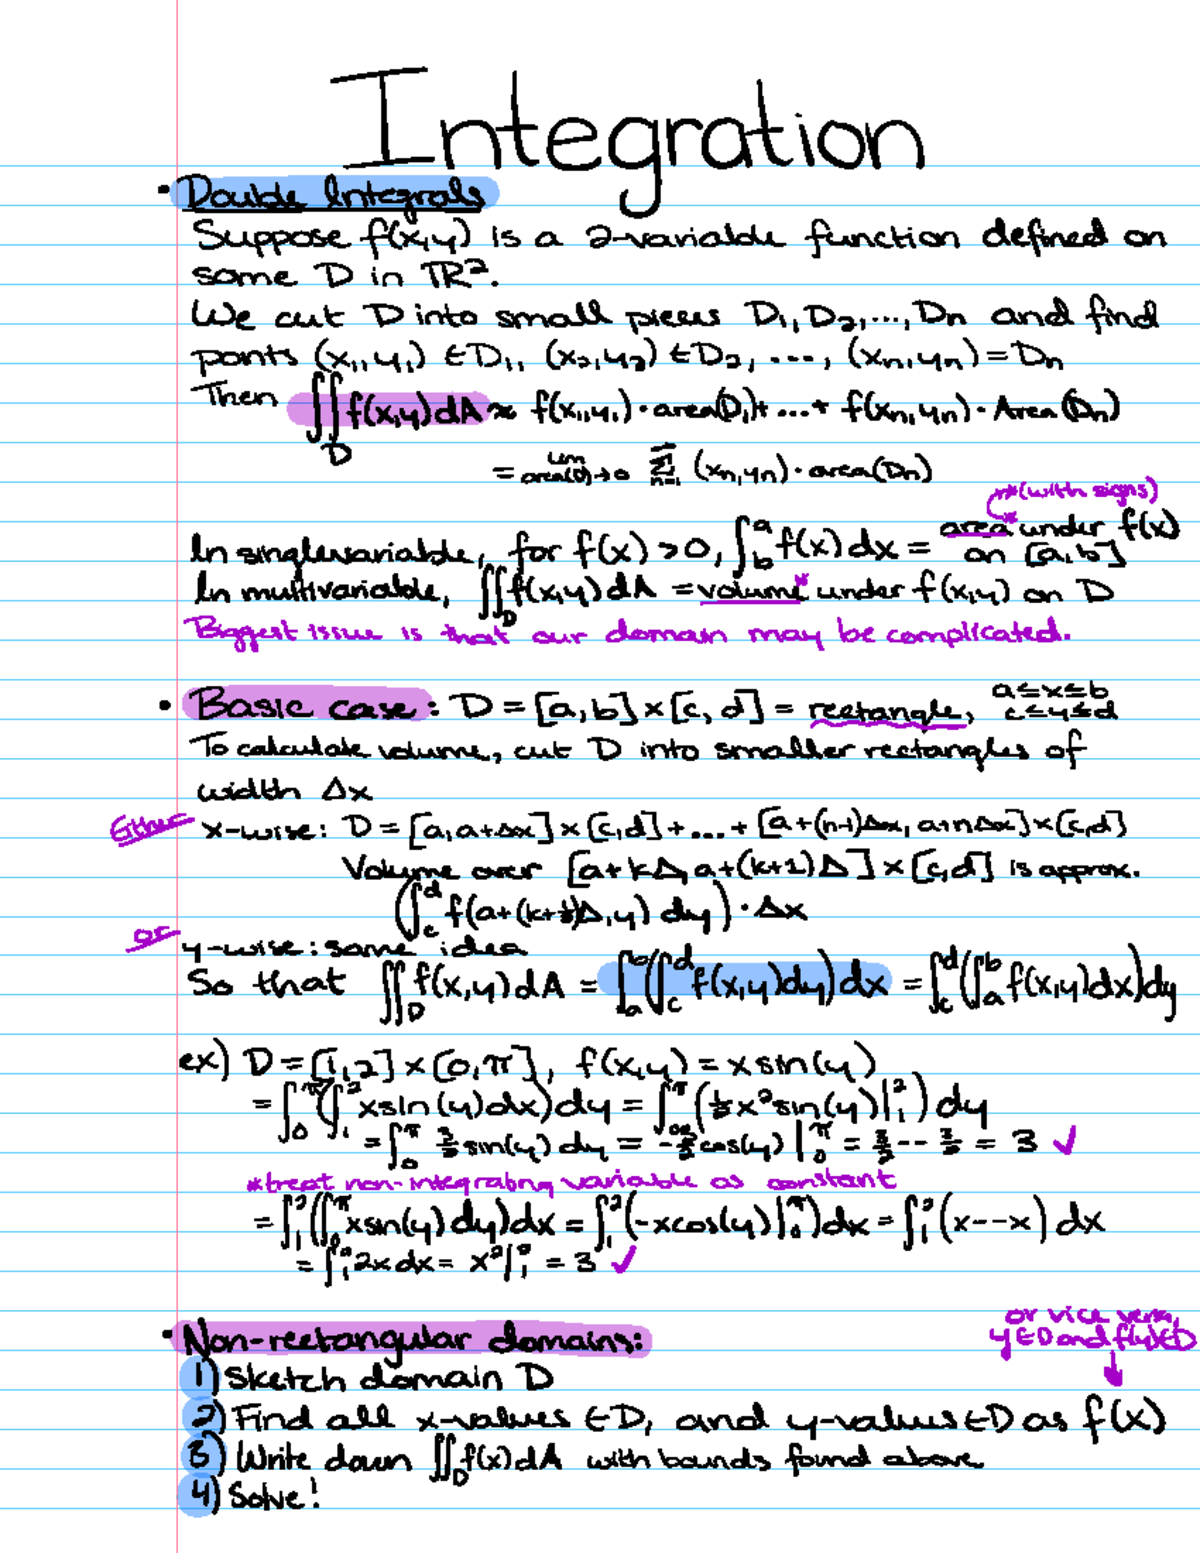 Integration
• Double Integrals
Suppose f(x,y) is a 2-variable function defined on
some D in ℝ².
We cut D into small pieces D₁, D₂, ..., Dn and find
points (x₁,y₁) ∈ D₁, (x₂,y₂) ∈ D₂, ..., (xn,yn) = Dn
Then ∬_D f(x,y)dA ≈ f(x₁,y₁)·area(D₁)+ ... + f(xn,yn)·Area(Dn)
= lim area(D)→0 Σ n=1 (xn,yn)·area(Dn)
*(with signs)
In singlevariable, for f(x) >0, ∫_b^a f(x)dx = area* under f(x) on [a,b]
In multivariable, ∬_D f(x,y)dA = volume* under f(x,y) on D
Biggest issue is that our domain may be complicated.
• Basic case: D = [a,b]×[c,d] = rectangle, a≤x≤b c≤y≤d
To calculate volume, cut D into smaller rectangles of
width Δx
Either x-wise: D = [a,a+Δx]×[c,d]+...+[a+(n-1)Δx, a+nΔx]×[c,d]
Volume over [a+kΔ, a+(k+1)Δ]×[c,d] is approx.
(∫_c^d f(a+(k+½)Δ,y) dy)·Δx
or y-wise: same idea
So that ∬_D f(x,y)dA = ∫_a^b(∫_c^d f(x,y)dy)dx = ∫_c^d(∫_a^b f(x,y)dx)dy
ex) D = [1,2]×[0,π], f(x,y) = x sin(y)
= ∫_0^π(∫_1^2 xsin(y)dx)dy = ∫_0^π(½x²sin(y)|_1^2) dy
= ∫_0^π 3/2 sin(y) dy = -3/2 cos(y)|_0^π = 3/2 -- 3/2 = 3 ✓
*treat non-integrating variable as constant
= ∫_1^2(∫_0^π xsin(y)dy)dx = ∫_1^2(-xcos(y)|_0^π)dx = ∫_1^2(x--x) dx
= ∫_1^2 2xdx = x²|_1^2 = 3 ✓
or vice versa,
y∈D and f(y)∈D
• Non-rectangular domains:
1) Sketch domain D
2) Find all x-values ∈D, and y-values ∈D as f(x)
3) Write down ∬_D f(x)dA with bounds found above
4) Solve!